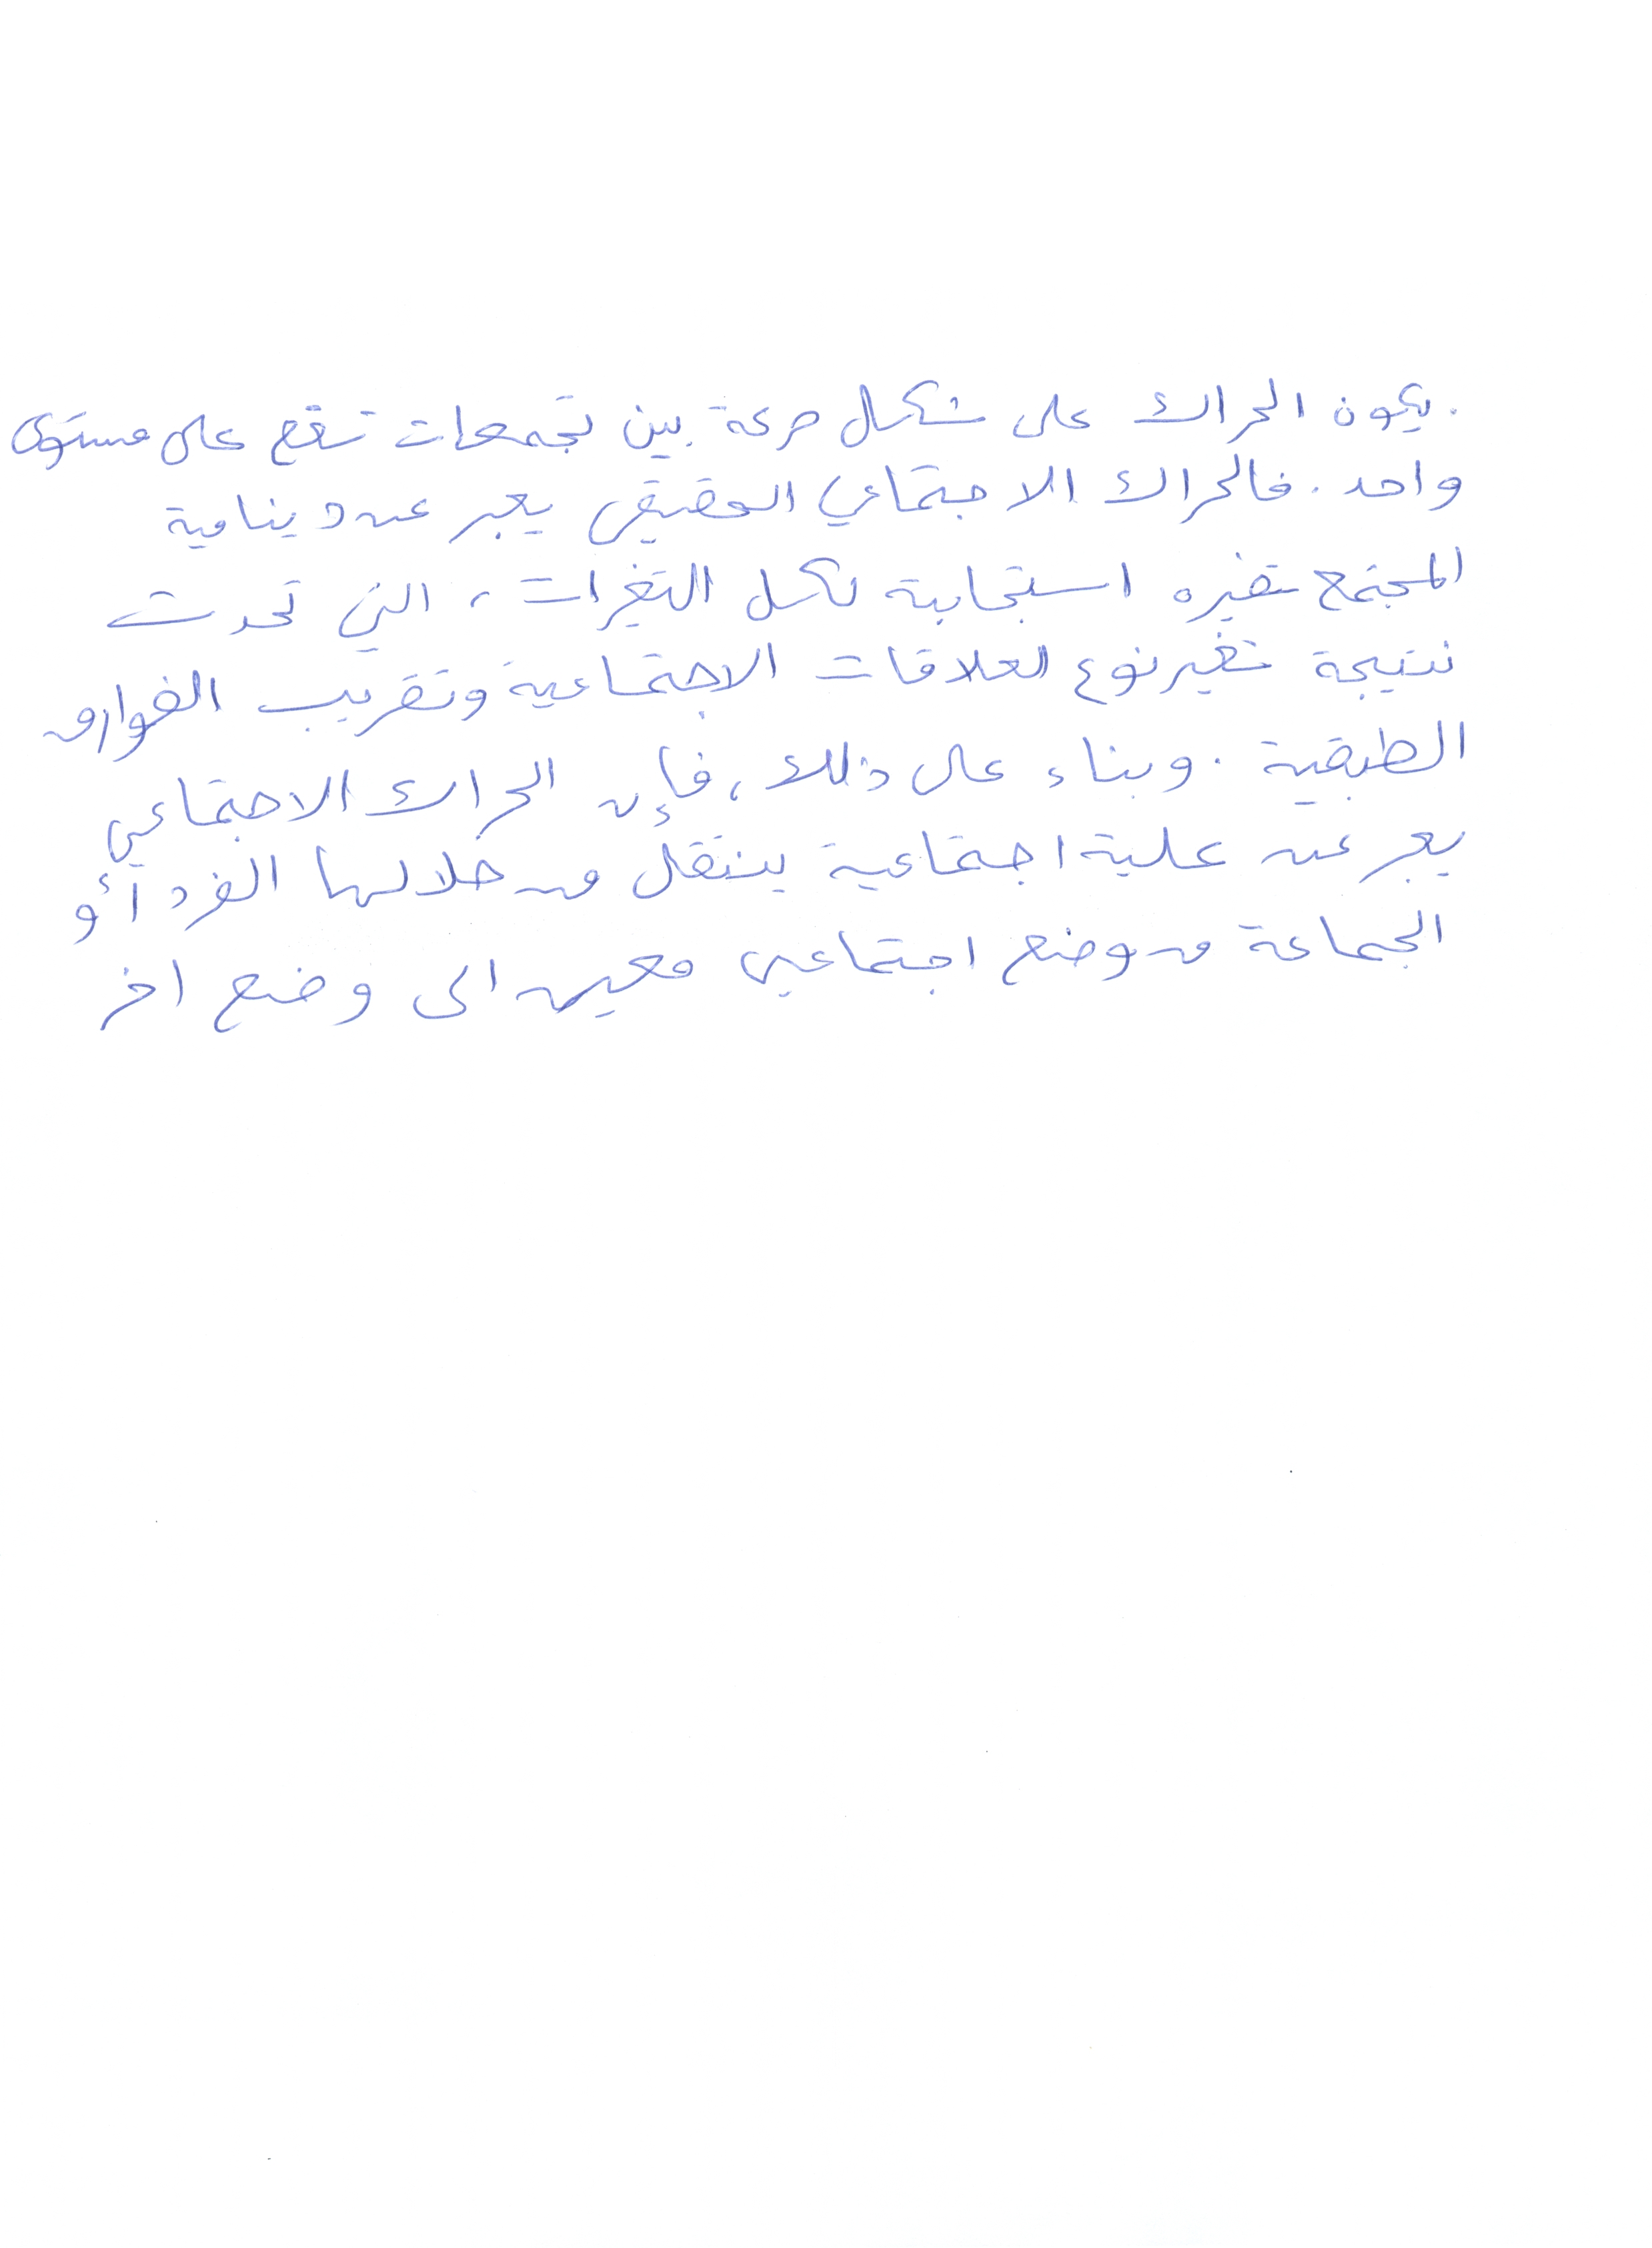 . يكون الحراك على شكل حركة بين تجمعات تقع على مستوى
واحد . فالحراك الاجتماعي الحقيقي يعبر عن دينامية
المجتمع بتغيره استجابية لكل التغيرات ، التي تحدث
نتيجة تغير نوع العلاقات الاجتماعية وتقريب الفوارق
الطبقية . وبناء على ذلك ، فإن الحراك الاجتماعي
يعبر عن عملية اجتماعية ينتقل من خلالها الفرد أو
الجماعة من وضع اجتماعي معين الى وضع اخر